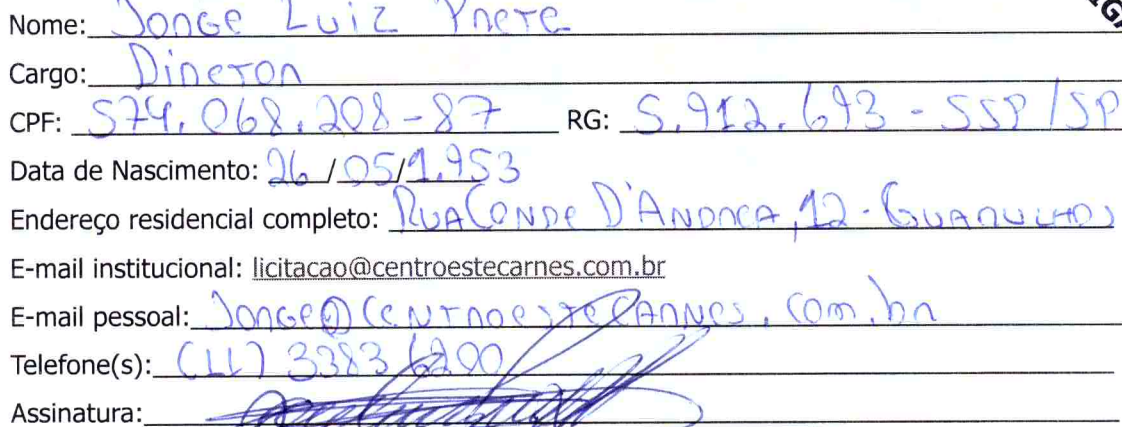 Nome: Jorge Luiz Prete
Cargo: Diretor
CPF: 574.068.208-87 RG: 5.912.693 - SSP/SP
Data de Nascimento: 26/05/1.953
Endereço residencial completo: Rua Conde D'Andrea, 12 - Guarulhos
E-mail institucional: licitacao@centroestecarnes.com.br
E-mail pessoal: Jorge@centroestecarnes.com.br
Telefone(s): (11) 3383 6200
Assinatura: